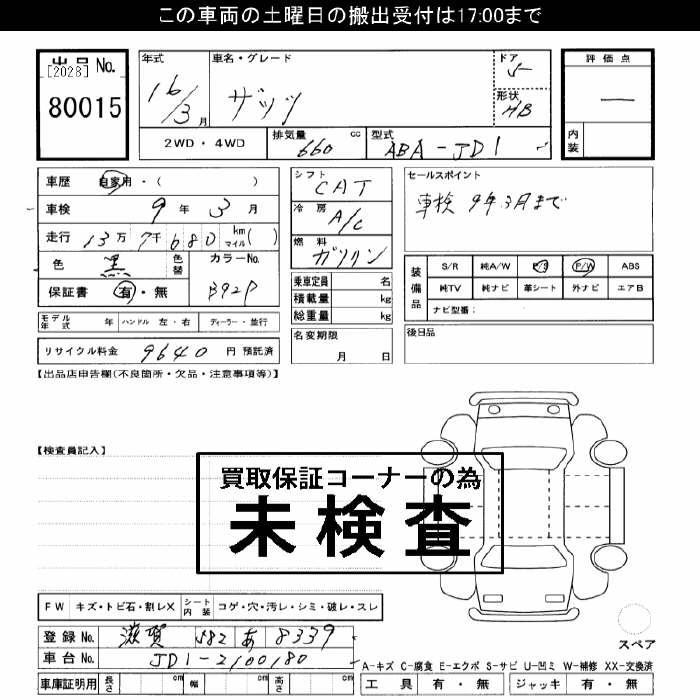 この車両の土曜日の搬出受付は17:00まで
出品 No.
[2028]
80015
年式
16/3 月
車名・グレード
ザッツ
ドア
5
形状
HB
評価点
内装
2WD・4WD
排気量 660 cc
型式 ABA-JD1
車歴 自家用・( )
車検 9 年 3 月
走行 13万 7千 680 km マイル( )
色 黒 色替 カラーNo.
保証書 有・無 B92P
シフト CAT
冷房 A/C
燃料 ガソリン
乗車定員 名
積載量 kg
総重量 kg
セールスポイント
車検 9年3月まで
装備品
S/R 純A/W P/S P/W ABS
純TV 純ナビ 革シート 外ナビ エアB
ナビ型番:
モデル年式 年 ハンドル 左・右 ディーラー・並行
名変期限
月 日
後日品
リサイクル料金 9640 円 預託済
【出品店申告欄(不良箇所・欠品・注意事項等)】
【検査員記入】
買取保証コーナーの為
未検査
FW キズ・トビ石・割レX シート内装 コゲ・穴・汚レ・シミ・破レ・スレ
登録 No. 滋賀 582 あ 8339
車台 No. JD1-2100180
スペア
A-キズ C-腐食 E-エクボ S-サビ U-凹ミ W-補修 XX-交換済
車庫証明用 長さ cm 幅 cm 高さ cm
工具 有・無 ジャッキ 有・無